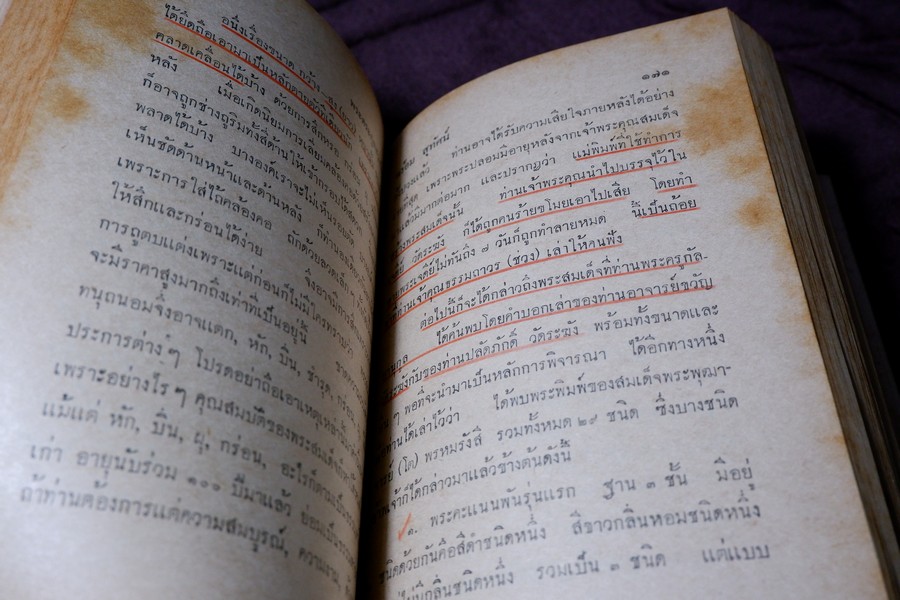 อนึ่งเรื่องขนาด กว้าง
ได้ยึดถือเอามาเป็นหลัก
คลาดเคลื่อนได้บ้าง ด้วยการสึกหรอ
หลัง เมื่อเกิดนิยมการเลี่ยม
ก็อาจถูกช่างถูริมทั้งสี่ด้านให้เข้ากรอบ
พลาดได้บ้าง บางองค์เราจะไม่เห็น
เห็นชัดด้านหน้าและด้านหลัง
เพราะการใส่ไถ่คล้องคอ ถักด้วยลวด
ให้สึกและกร่อนได้ง่าย
การถูตบแต่งเพราะแต่ก่อนก็ไม่มีใคร
จะมีราคาสูงมากถึงเท่าที่เป็นอยู่นี้
ทนุถนอมจึงอาจแตก, หัก, บิ่น, ชำรุด,
ประการต่าง ๆ โปรดอย่าถือเอาเหตุเหล่านั้น
เพราะอย่างไร ๆ คุณสมบัติของพระสมเด็จ
แม้แต่ หัก, บิ่น, ผุ, กร่อน, อะไรก็ตาม
เก่า อายุนับร่วม ๑๐๐ ปีมาแล้ว ย่อม
ถ้าท่านต้องการแต่ความสมบูรณ์, ความงาม,
๑๗๑
สุทัศน์ ท่านอาจได้รับความเสียใจภายหลังได้อย่าง
เพราะพระปลอมมีอายุหลังจากเจ้าพระคุณสมเด็จ
แล้วมีมากต่อมาก และปรากฏว่า แม่พิมพ์ที่ใช้ทำการ
พระสมเด็จนั้น ท่านเจ้าพระคุณนำไปบรรจุไว้ใน
วัดระฆัง ก็ได้ถูกคนร้ายขโมยเอาไปเสีย โดยทำ
พระเจดีย์ไม่ทันถึง ๗ วันก็ถูกทำลายหมด นี้เป็นถ้อย
ท่านเจ้าคุณธรรมถาวร (ช่วง) เล่าให้คนฟัง
ต่อไปนี้ก็จะได้กล่าวถึงพระสมเด็จที่ท่านพระครูกัล-
ได้ค้นพบโดยคำบอกเล่าของท่านอาจารย์ขวัญ
กับของท่านปลัดภักดิ์ วัดระฆัง พร้อมทั้งขนาดและ
ๆ พอที่จะนำมาเป็นหลักการพิจารณา ได้อีกทางหนึ่ง
ท่านได้เล่าไว้ว่า ได้พบพระพิมพ์ของสมเด็จพระพุฒา-
(โต) พรหมรังสี รวมทั้งหมด ๒๙ ชนิด ซึ่งบางชนิด
เจ้าก็ได้กล่าวมาแล้วข้างต้นดังนี้
๑. พระคะแนนพันรุ่นแรก ฐาน ๓ ชั้น มีอยู่
ชนิดด้วยกันคือสีดำชนิดหนึ่ง สีขาวกลิ่นหอมชนิดหนึ่ง
ไม่มีกลิ่นชนิดหนึ่ง รวมเป็น ๓ ชนิด แต่แบบ